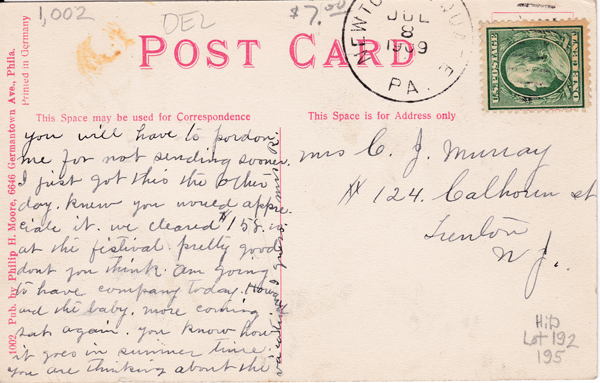 1,002
DEL
$7.00
POST CARD
NEWTOWN SQUARE
JUL
8
1909
PA.
U.S. POSTAGE
ONE CENT
This Space may be used for Correspondence
This Space is for Address only
1002. Pub. by Philip H. Moore, 6646 Germantown Ave., Phila.
Printed in Germany
you will have to pordon
me for not sending sooner.
I just got this the other
day. knew you would appre
ciate it. we cleared $158.
at the fistival pretty good
dont you think. am going
to have company today. Howard
and the baby. more coming
sat. again. you know how
it goes in summer time.
you are thinking about the
vacation I guess.
Mrs C. J. Murray
# 124. Calhoun st
Trenton
N. J.
Lot 192
195